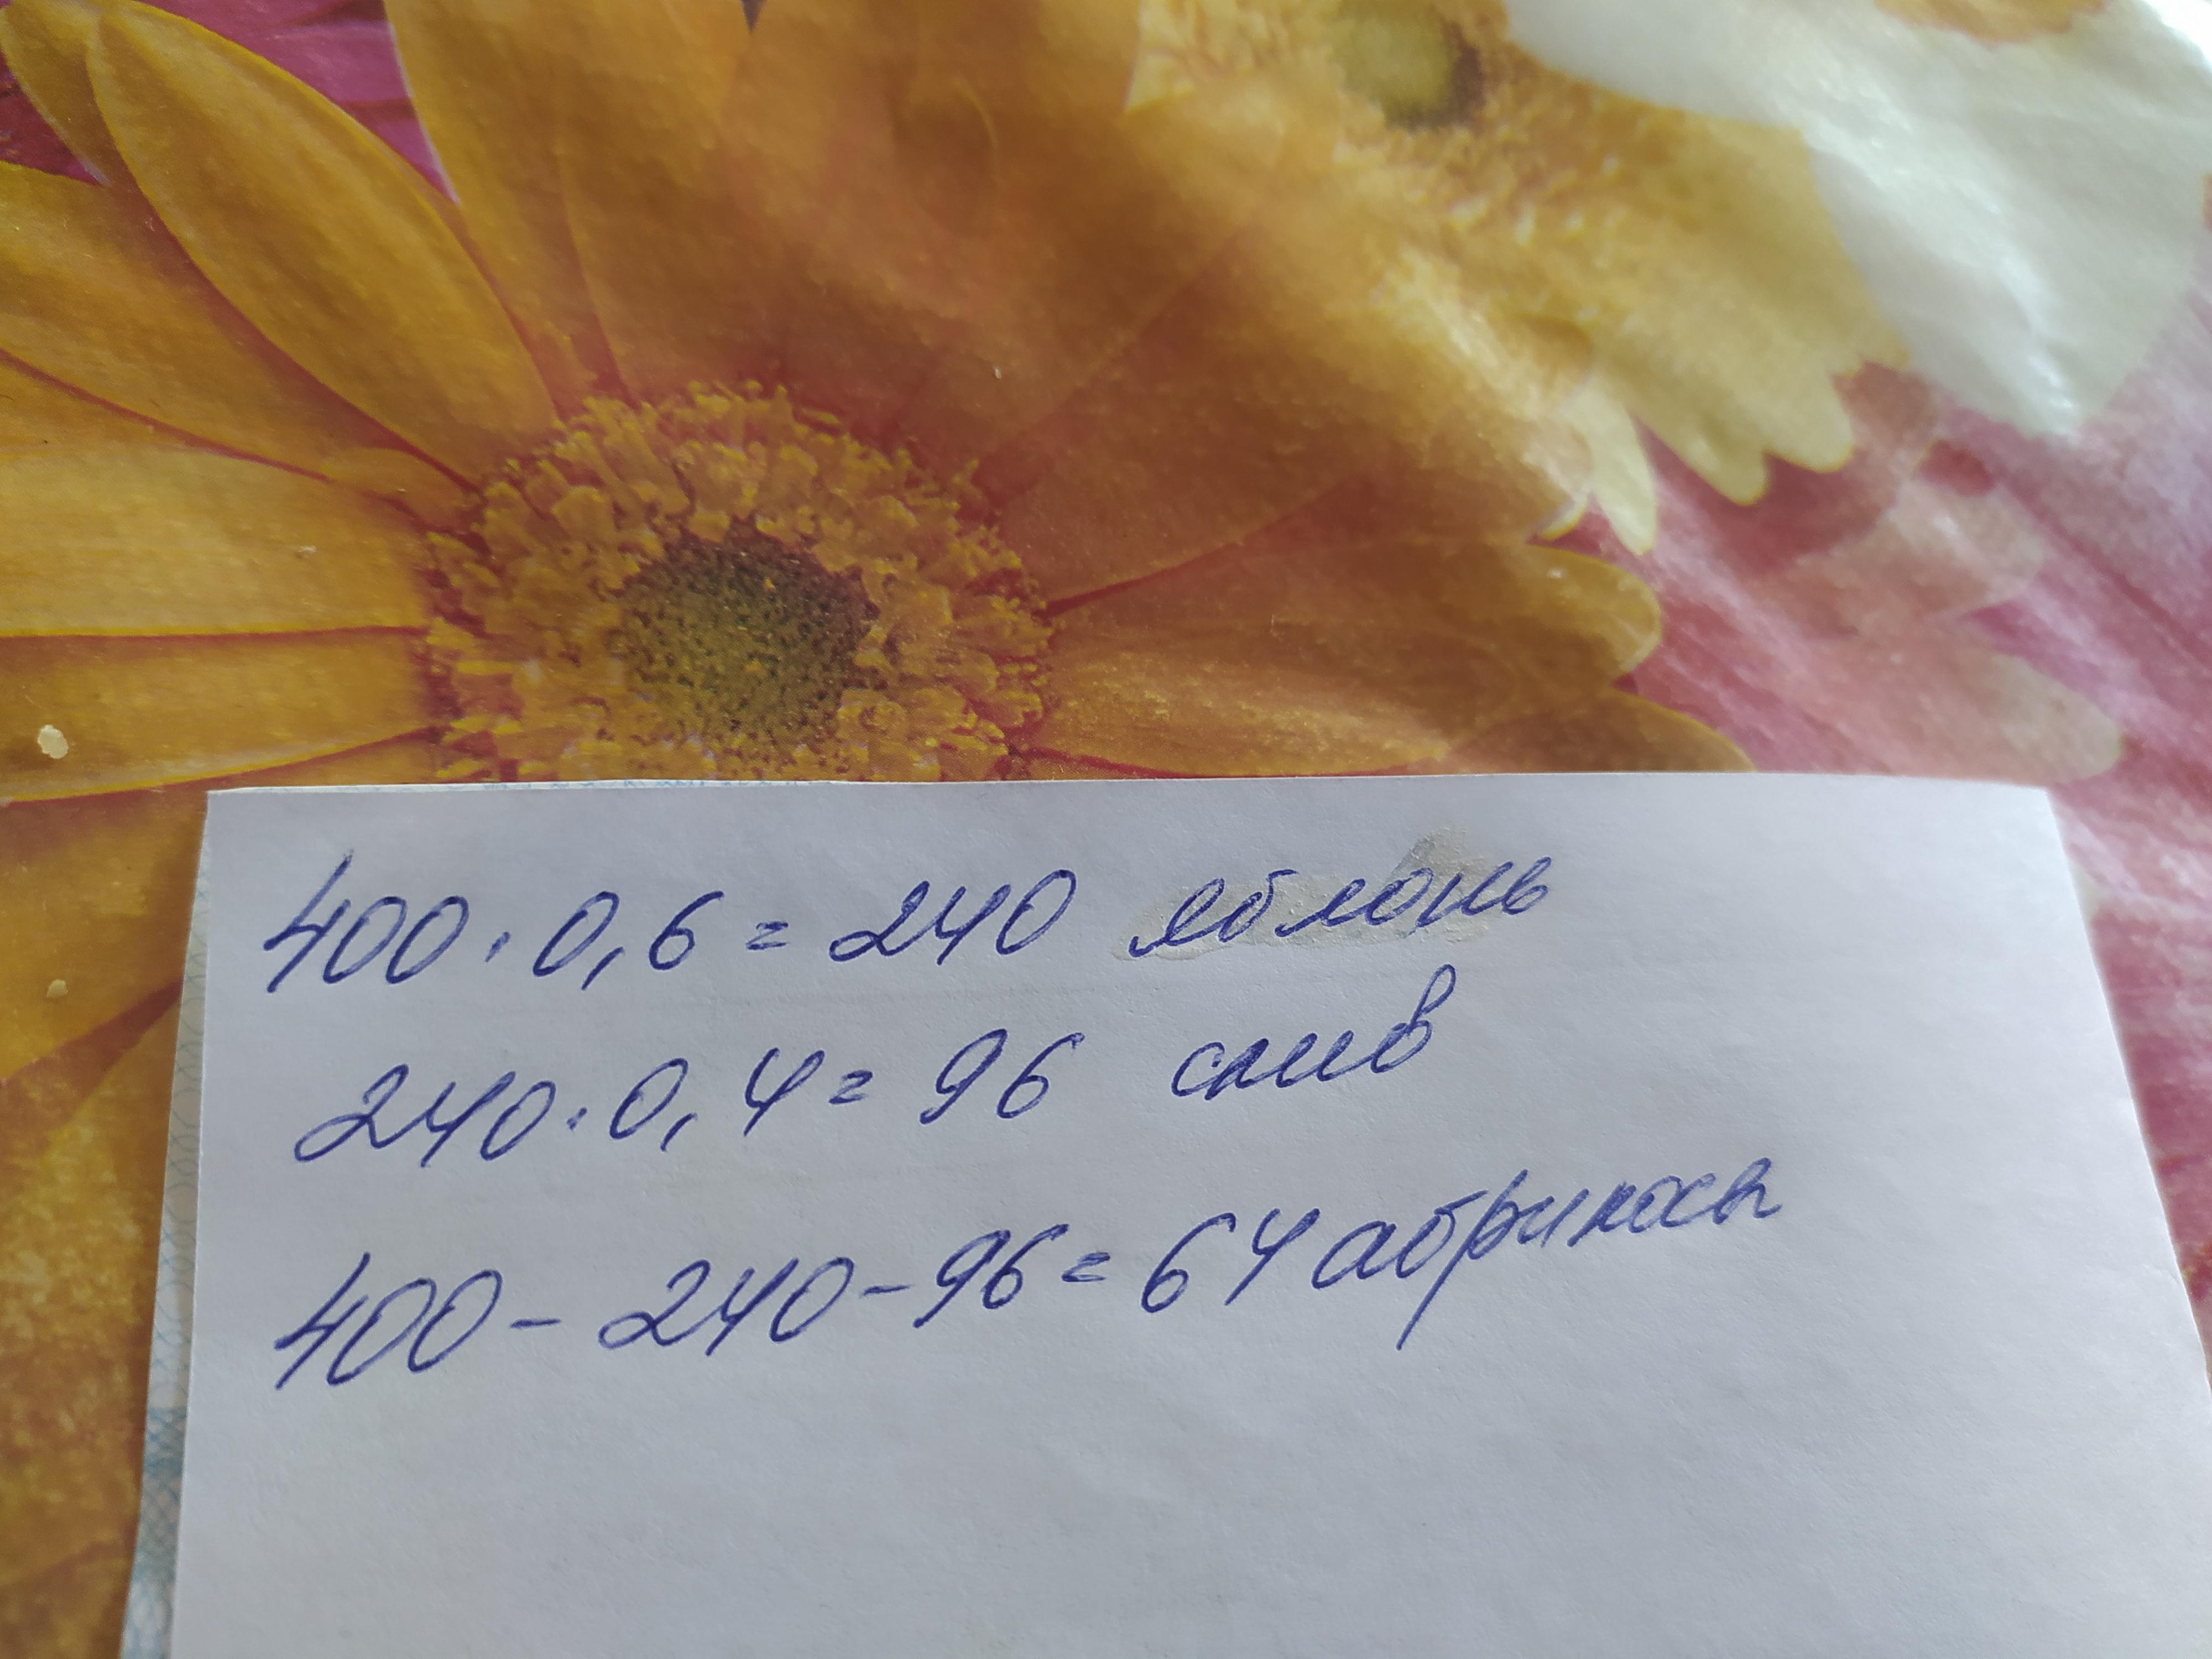 400 · 0,6 = 240 яблонь
240 · 0,4 = 96 слив
400 - 240 - 96 = 64 абрикосы